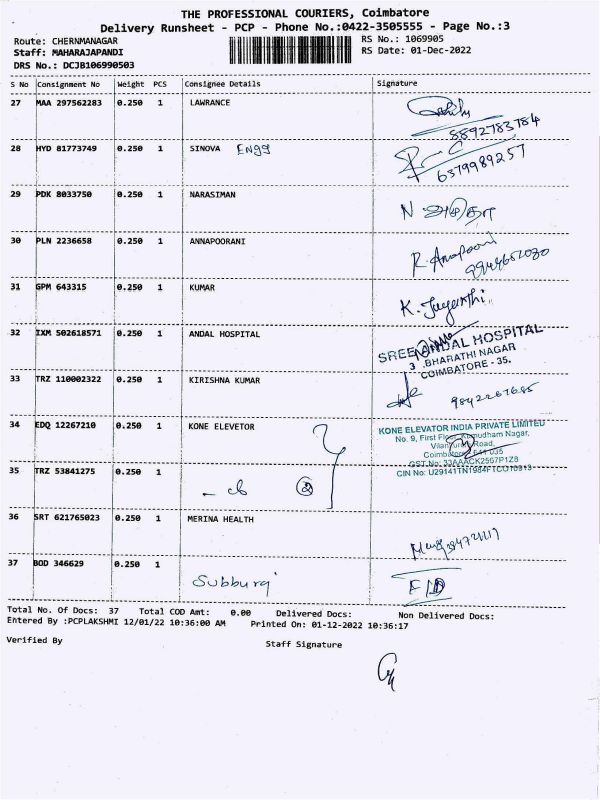 THE PROFESSIONAL COURIERS, Coimbatore
Delivery Runsheet - PCP - Phone No.:0422-3505555 - Page No.:3
Route: CHERNMANAGAR
RS No.: 1069905
Staff: MAHARAJAPANDI
RS Date: 01-Dec-2022
DRS No.: DCJB106990503
S No Consignment No Weight PCS Consignee Details Signature
27 MAA 297562283 0.250 1 LAWRANCE
8892783784
28 HYD 81773749 0.250 1 SINOVA Engg
6379989257
29 PDK 8033750 0.250 1 NARASIMAN
N
30 PLN 2236658 0.250 1 ANNAPOORANI
R. Annapoorni
31 GPM 643315 0.250 1 KUMAR
K. Jayanthi
32 IXM 502618571 0.250 1 ANDAL HOSPITAL
SREE ANDAL HOSPITAL
3 ,BHARATHI NAGAR
COIMBATORE - 35.
33 TRZ 110002322 0.250 1 KIRISHNA KUMAR
9842267685
34 EDQ 12267210 0.250 1 KONE ELEVETOR
KONE ELEVATOR INDIA PRIVATE LIMITED
No. 9, First Floor, Kumudham Nagar,
Road,
GST No: 33AAACK2567P1Z8
CIN No:
35 TRZ 53841275 0.250 1
36 SRT 621765023 0.250 1 MERINA HEALTH
37 BOD 346629 0.250 1
Subburaj
Total No. Of Docs: 37 Total COD Amt: 0.00 Delivered Docs: Non Delivered Docs:
Entered By :PCPLAKSHMI 12/01/22 10:36:00 AM Printed On: 01-12-2022 10:36:17
Verified By Staff Signature